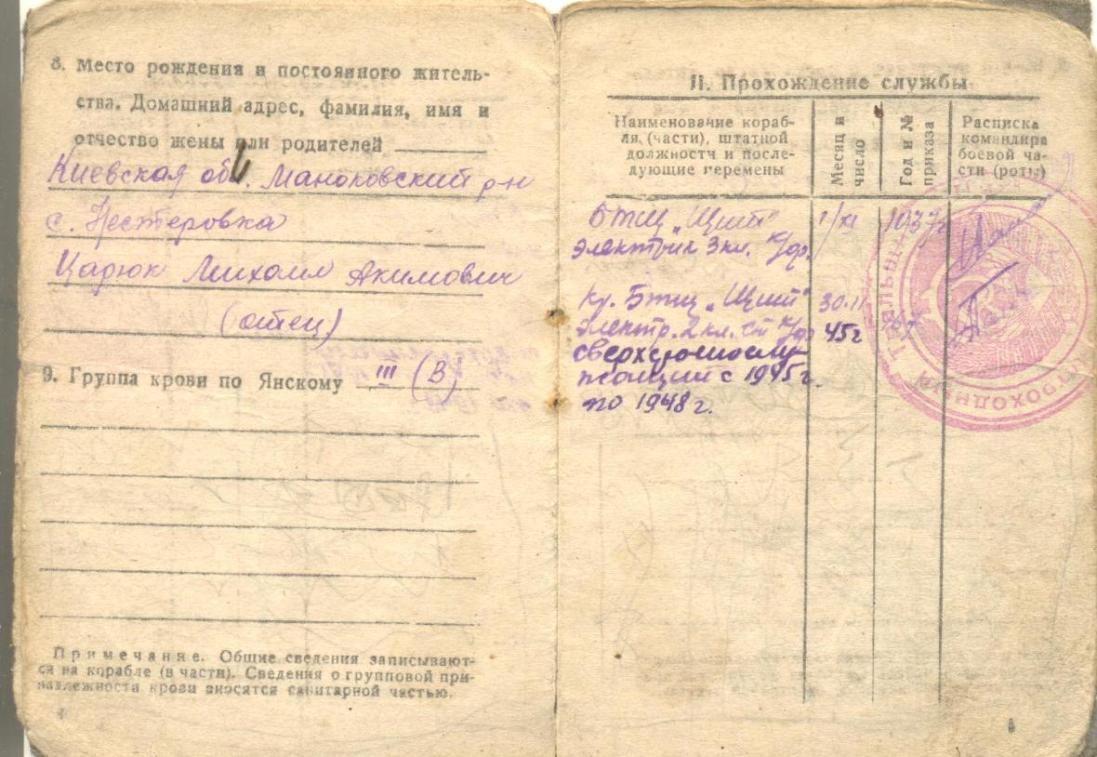 8. Место рождения и постоянного житель-
ства. Домашний адрес, фамилия, имя и
отчество жены или родителей
Киевская обл. Маньковский р-н
с. Нестеровка
Царюк Михаил Акимович
(отец)
9. Группа крови по Янскому III (В)
Примечание. Общие сведения записывают-
ся на корабле (в части). Сведения о групповой при-
надлежности крови вносятся санитарной частью.
II. Прохождение службы
Наименование кораб-
ля, (части), штатной
должности и после-
дующие перемены
Месяц и
число
Год и №
приказа
Расписка
командира
боевой ча-
сти (роты)
БТЩ „Щит" 1/XI 1937г
электрик 3кл. к/фр.
Кр. БТЩ „Щит" 30.II
электр. 2кл. ст к/фр 45г
сверхсрочнослу
с 1945г.
по 1948г.